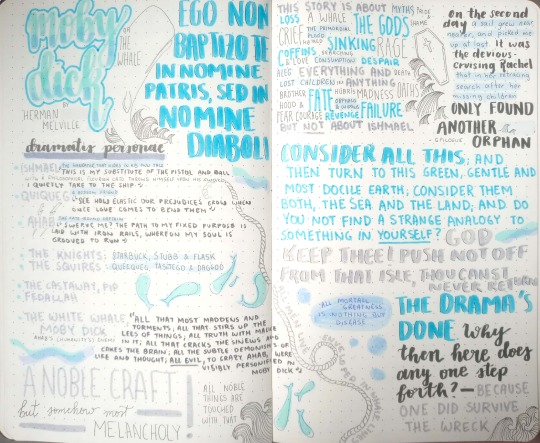 moby
dick
OR
THE
WHALE
BY
HERMAN
MELVILLE
EGO NON
BAPTIZO TE
IN NOMINE
PATRIS, SED IN
NOMINE
DIABOLI
dramatis personae
ISHMAEL
THIS IS MY SUBSTITUTE FOR PISTOL AND BALL
I QUIETLY TAKE TO THE SHIP
QUEEQUEG
SEE HOW ELASTIC OUR PREJUDICES GROW WHEN
ONCE LOVE COMES TO BEND THEM
AHAB
SWERVE ME? THE PATH TO MY FIXED PURPOSE IS
LAID WITH IRON RAILS, WHEREON MY SOUL IS
GROOVED TO RUN
THE KNIGHTS: STARBUCK, STUBB & FLASK
THE SQUIRES: QUEEQUEG, TASHTEGO & DAGGOO
THE CASTAWAY, PIP
FEDALLAH
THE WHITE WHALE
MOBY DICK
"ALL THAT MOST MADDENS AND
TORMENTS; ALL THAT STIRS UP THE
LEES OF THINGS; ALL TRUTH WITH MALICE
IN IT; ALL THAT CRACKS THE SINEWS AND
CAKES THE BRAIN; ALL THE SUBTLE DEMONISMS OF
LIFE AND THOUGHT; ALL EVIL, TO CRAZY AHAB, WERE
VISIBLY
MOBY DICK"
A NOBLE CRAFT
but somehow most
MELANCHOLY!
ALL NOBLE
THINGS ARE
TOUCHED
WITH THAT
THIS STORY IS ABOUT MYTHS
LOSS A WHALE THE GODS
GRIEF THE PRIMORDIAL
FLOOD SINKING RAGE
COFFINS SEARCHING
& LOVE CONSUMPTION DESPAIR
EVERYTHING AND DEATH
LOST COUNTING IN ANYTHING
BROTHER FATE HUBRIS MADNESS OATHS
HOOD & ORPHAN
FEAR COURAGE REVENGE FAILURE
BUT NOT ABOUT ISHMAEL
on the second
day a sail drew near,
nearer, and picked me
up at last it was
the devious-
cruising Rachel
that in her retracing
search after her
missing children
ONLY FOUND
ANOTHER
ORPHAN
EPILOGUE
CONSIDER ALL THIS; AND
THEN TURN TO THIS GREEN, GENTLE AND
MOST DOCILE EARTH; CONSIDER THEM
BOTH, THE SEA AND THE LAND; AND DO
YOU NOT FIND A STRANGE ANALOGY TO
SOMETHING IN YOURSELF? GOD
KEEP THEE! PUSH NOT OFF
FROM THAT ISLE, THOU CANST
NEVER RETURN
ALL MORTAL
GREATNESS
IS NOTHING BUT
DISEASE
THE DRAMA'S
DONE Why
then here does
any one step
forth? — BECAUSE
ONE DID SURVIVE
THE WRECK